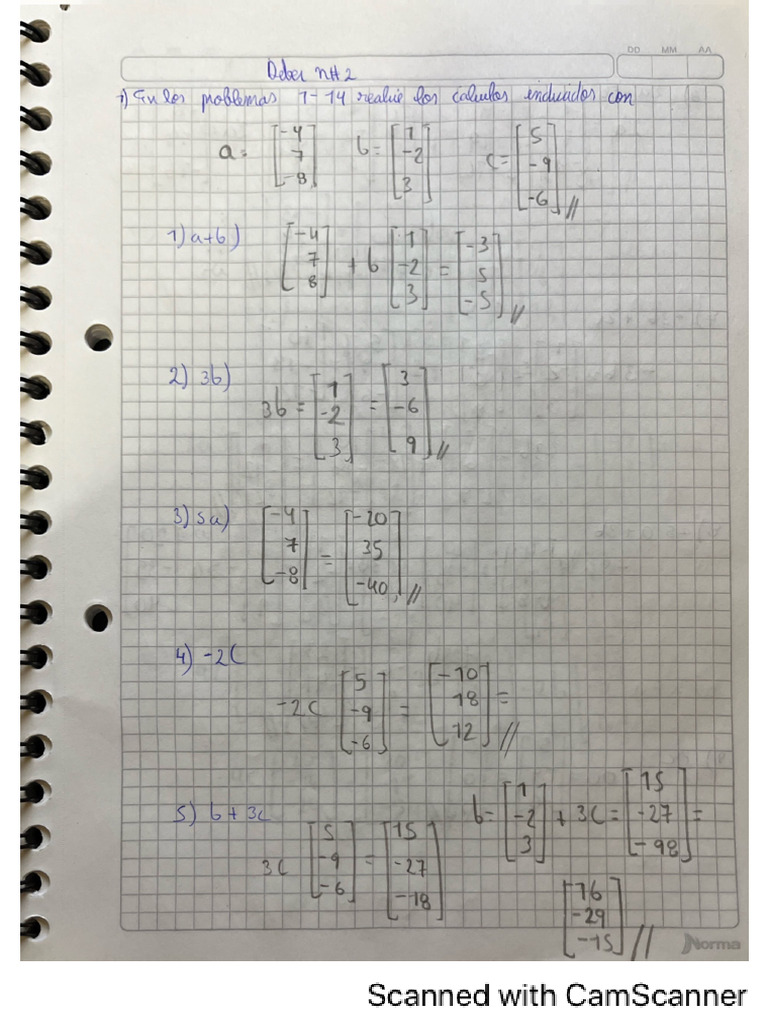 DD MM AA
Deber n#2
1) En los problemas 1-14 realice los calculos indicados con
a = [-4 7 -8] b = [1 -2 3] c = [5 -9 -6] //
1) a+b) [-4 7 8] + b [1 -2 3] = [-3 5 -5] //
2) 3b) 3b = [1 -2 3] = [3 -6 9] //
3) 5a) [-4 7 -8] = [-20 35 -40] //
4) -2C
-2C [5 -9 -6] = [-10 18 12] = //
5) b + 3C
3C [5 -9 -6] = [15 -27 -18]
b = [1 -2 3] + 3C = [15 -27 -98] =
[16 -29 -15] //
Norma
Scanned with CamScanner